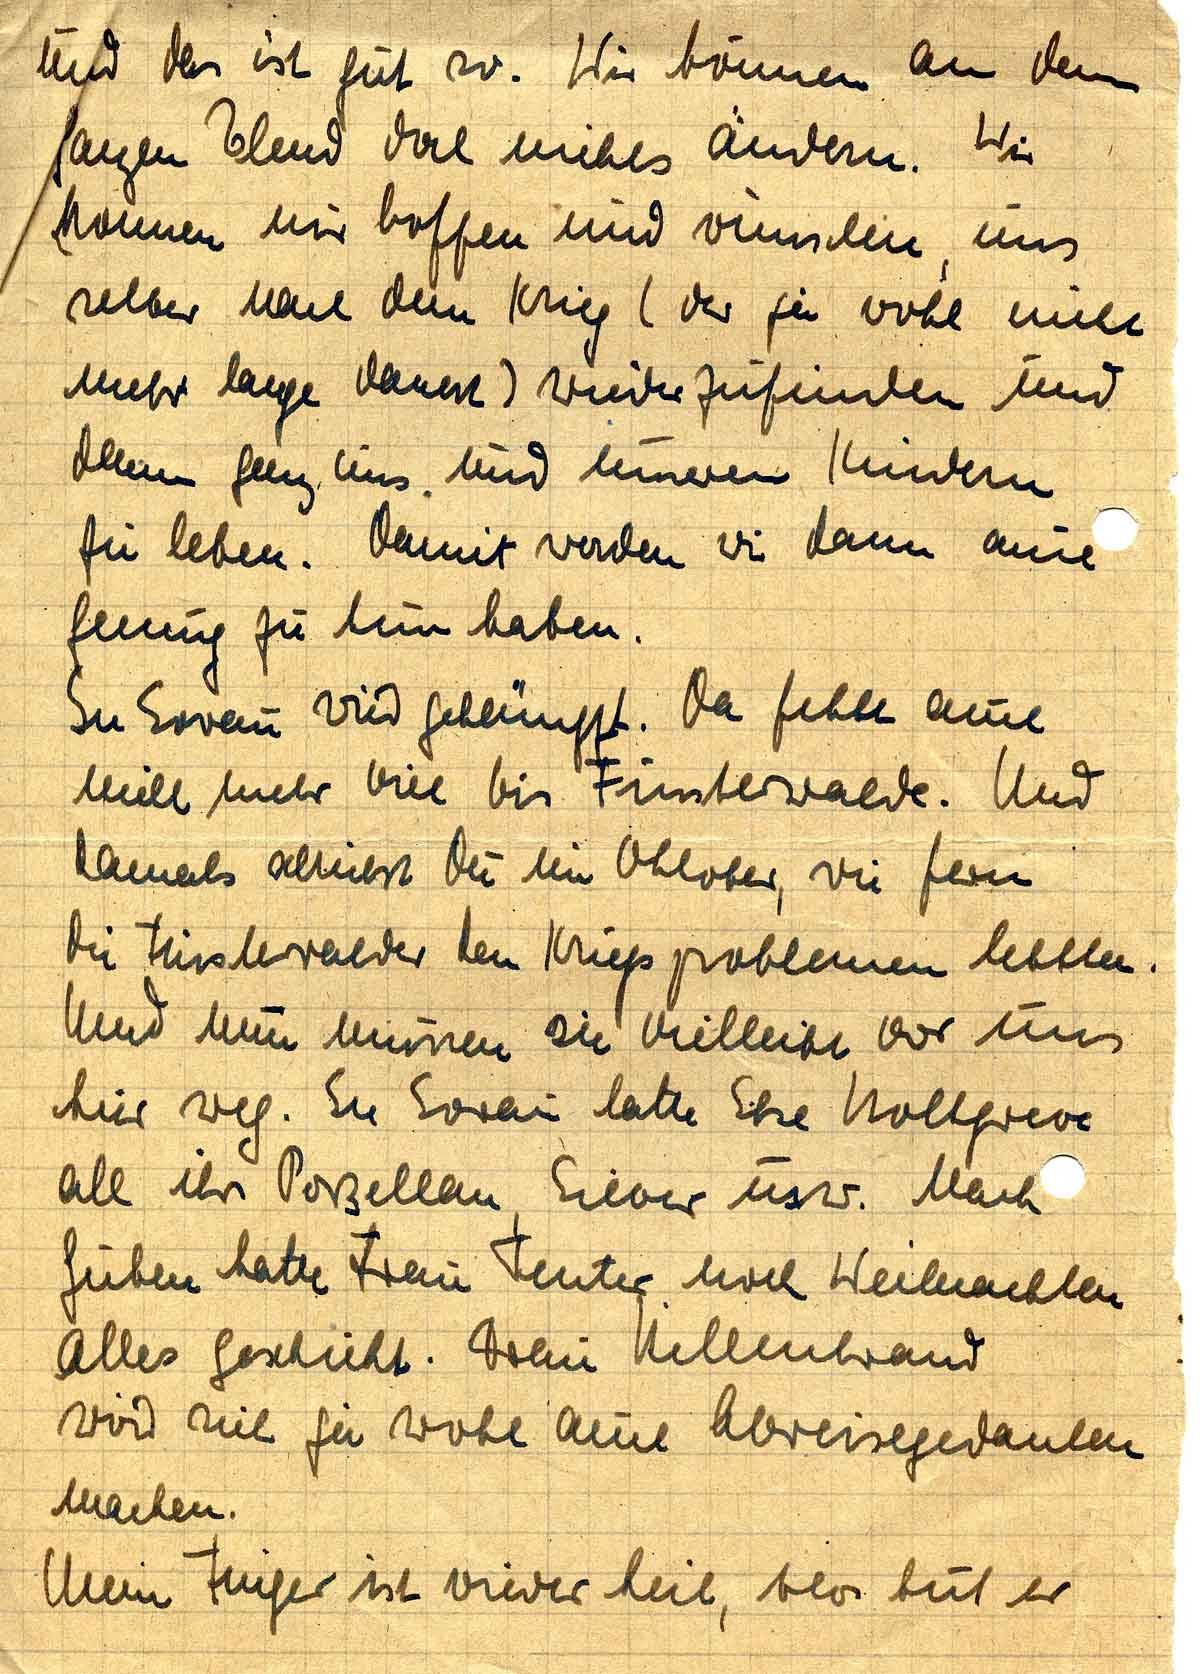 Und das ist gut so. Wir können an dem
ganzen Elend doch nichts ändern. Wir
können nur hoffen und wünschen, uns
selber nach dem Krieg (der ja wohl nicht
mehr lange dauert) wiederzufinden und
dann ganz uns und unseren Kindern
zu leben. Damit werden wir dann auch
genug zu tun haben.
In Sorau wird gekämpft. Da fehlt auch
nicht mehr viel bis Finsterwalde. Und
damals schriebst Du im Oktober, wie fern
die Finsterwalder den Kriegsproblemen lebten.
Und nun müssen sie vielleicht vor uns
hier weg. In Sorau hatte Ilse Holtgreve
all ihr Porzellan, Silber usw. Nach
Guben hatte Frau Tenter noch Weihnachten
alles geschickt. Frau Hillenbrand
wird sich ja wohl auch Abreisegedanken
machen.
Mein Finger ist wieder heil, blos tut er